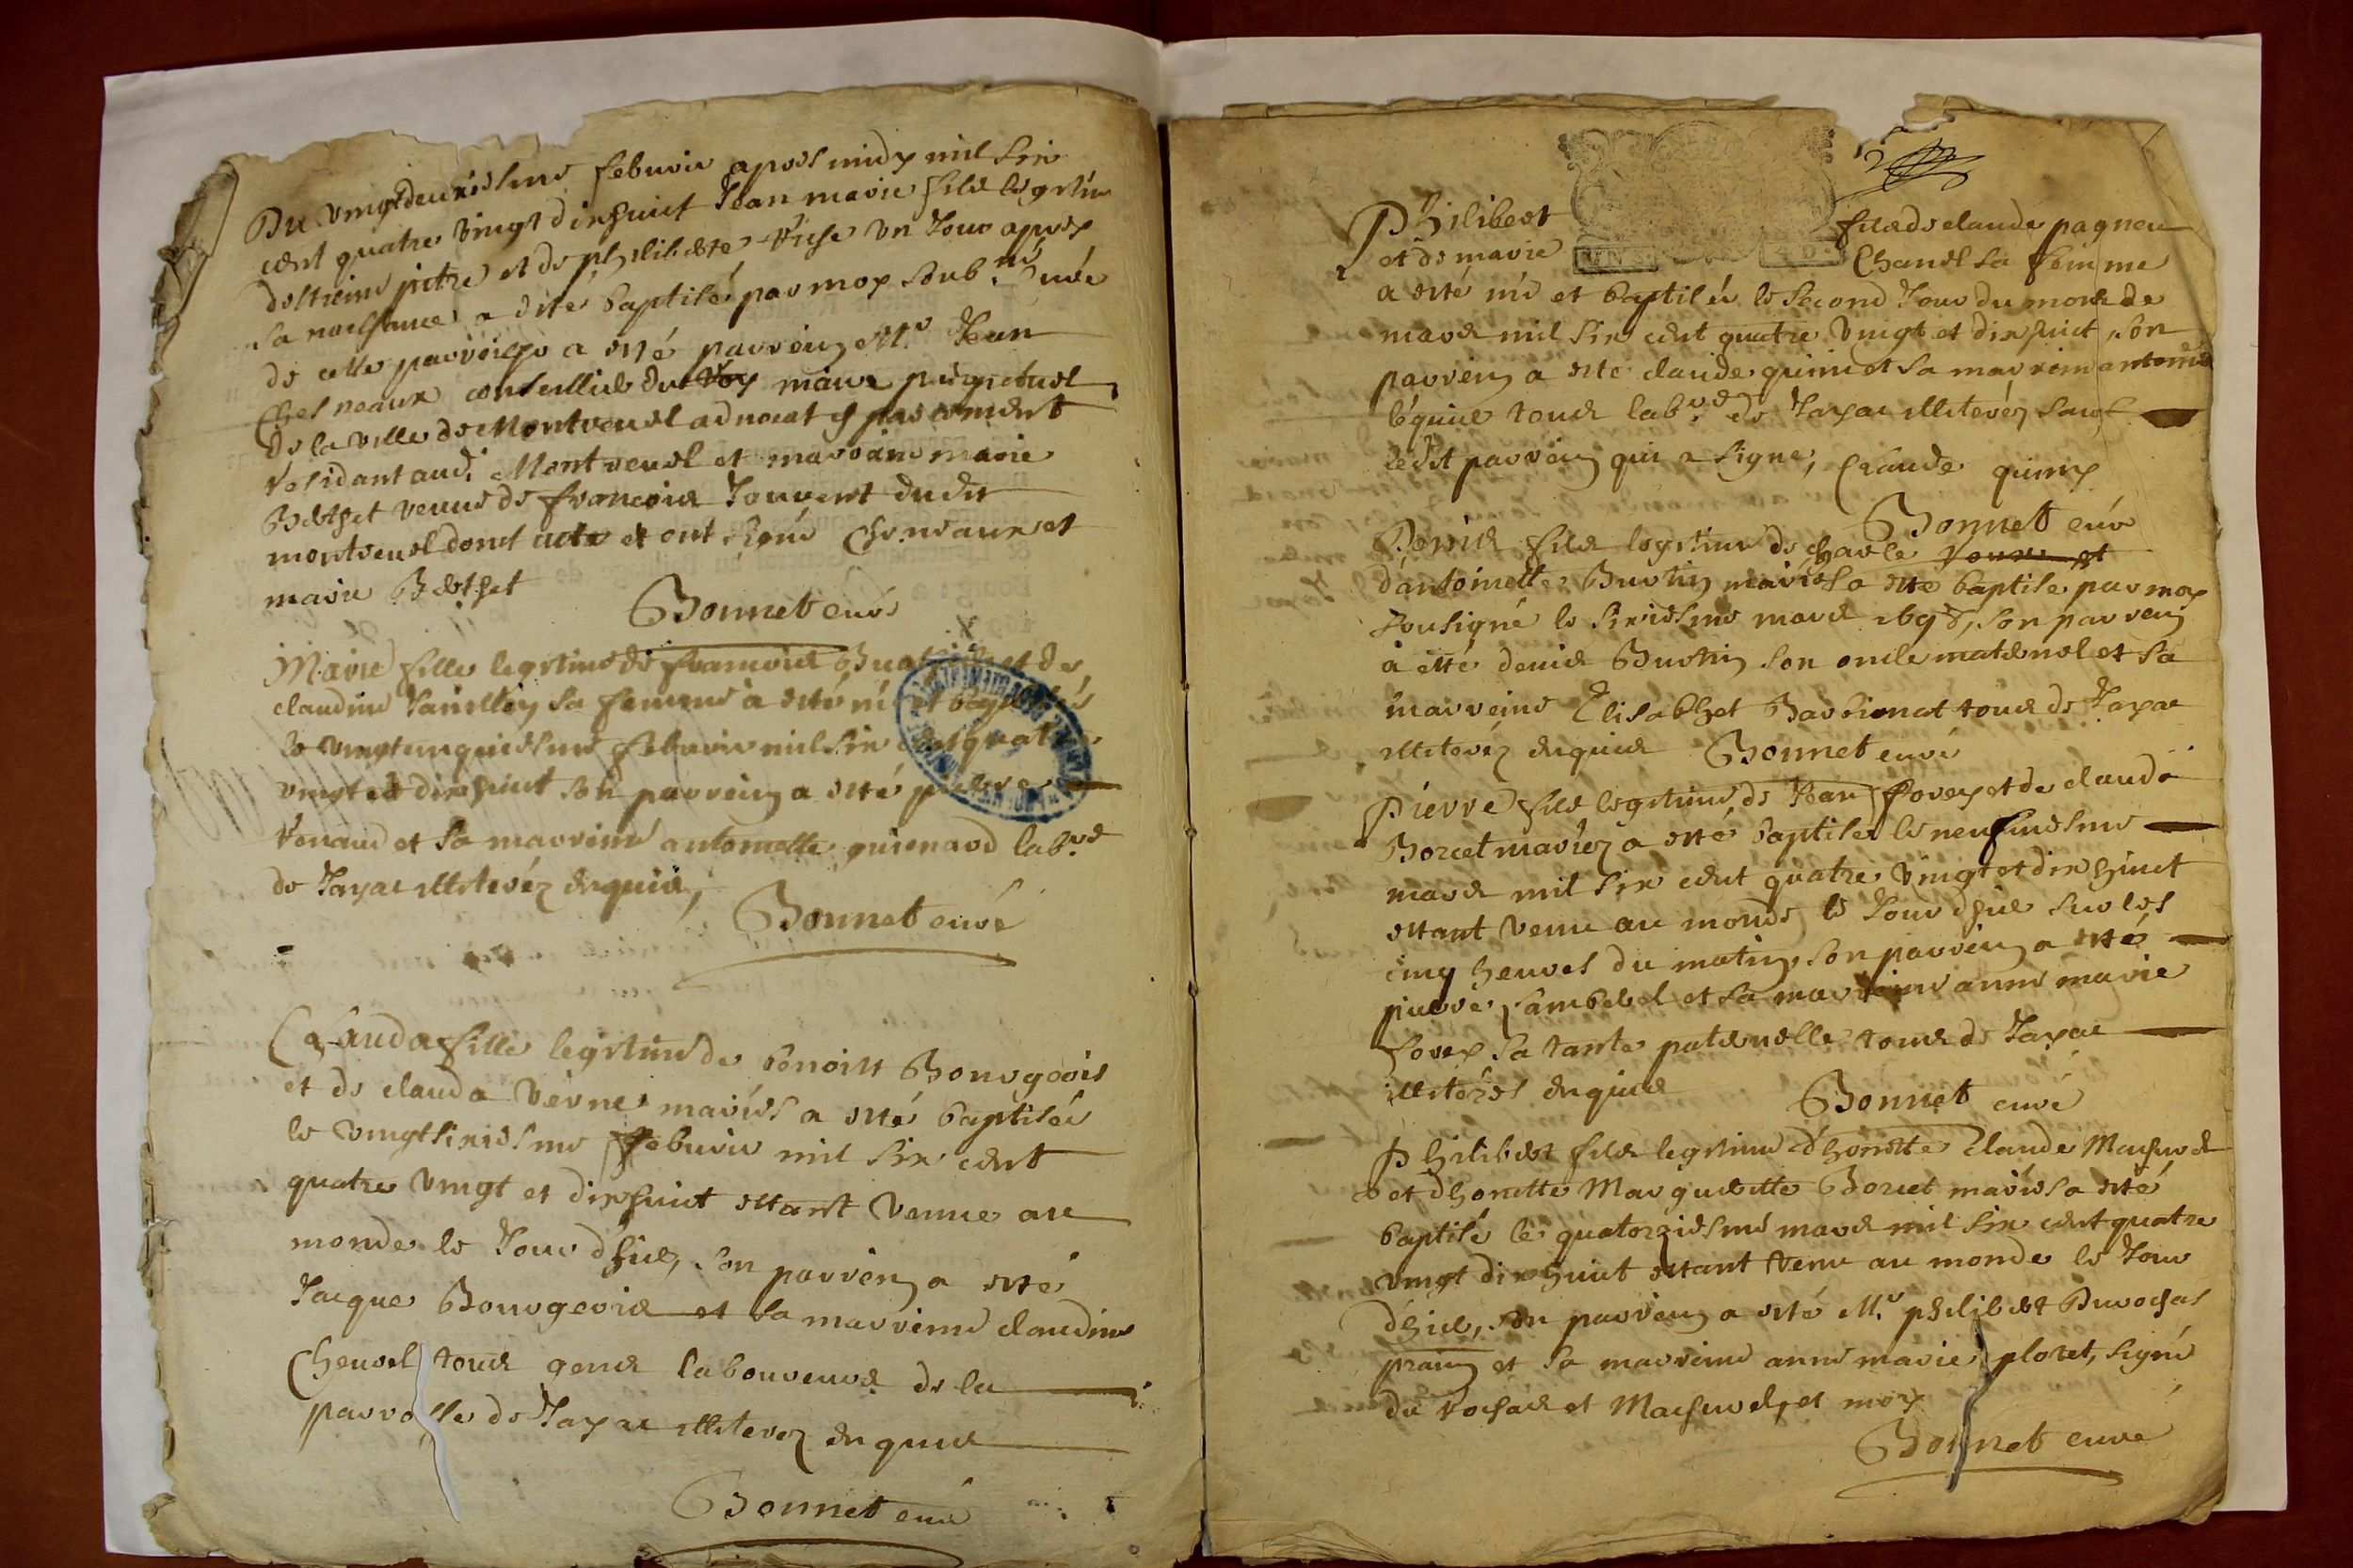 Du vingtdeuxiesme febvrier apres midy mil six
cent quatre vingt dixhuict Jean marie fils legitime
destienne pitre et de philiberte un Jour apres
sa naissance a esté baptisé par moy soub.né curé
de cette parroisse a esté parrein Mr Jean
Chesneaux conseillier du Roy maire perpetuel
de la ville de Montrevel advocat en parlement
residant aud. Montrevel et marraine marie
Bethet veuve de francois Jouvent dudit
montrevel dont acte et ont signé Chesneaux et
marie Bethet
Bonnet curé
Marie fille legitime de francois et de
claudine sa femme a esté né et baptisée
le vingtcinquiesme febvrier mil six cent quatre
vingt et dixhuict son parrein a esté pierre
Renaud et sa marreine antoinette guienard labrs
de Jayac illiterez enquis,
Bonnet curé
Clauda fille legitime de benoist Bourgeois
et de clauda verne mariés a esté baptisée
le vingtsixiesme febvrier mil six cent
quatre vingt et dixhuict estant venue au
monde le Jour d'hier, son parrein a esté
Jacque Bourgeois et sa marreine claudine
Chevrel tous gens laboureurs de la
parroisse de Jayac illiterez enquis
Bonnet curé
2
Philibert fils de claude pagneu
et de marie Chanel sa femme
a esté né et baptisé le second Jour du mois de
mars mil six cent quatre vingt et dixhuict son
parrein a esté claude quiny et sa marreine antoine
léquié tous labrs de Jayac illiterez sauf
ledit parrein qui a signé, Claude quiny
Bonnet curé
Denis fils legitime de charle et
d'antoinette Burtin mariés a esté baptisé par moy
sousigné le sixiesme mars 1698, son parrein
a esté denis Burtin son oncle maternel et sa
marreine Elisabhet Barbionat tous de Jayac
illiterez enquis Bonnet curé
Pierre fils legitime de Jean forey et de clauda
Borcet mariez a esté baptisé le neufviesme
mars mil six cent quatre vingt et dix huict
estant venu au monde le Jour d'hier sur les
cinq heures du matin, son parrein a esté
pierre Jambevel et sa marreine anne marie
forey sa tante paternelle tous de Jayac
illiterés enquis Bonnet curé
Philibert fils legitime d'honeste Claude Machurd
et d'honeste Marguerite Borcet mariés a esté
baptisé le quatorziesme mars mil six cent quatre
vingt dix huict estant venu au monde le Jour
d'hier, son parrein a esté Mr philibert Durochas
prain et sa marreine anne marie ploret, signé
du rochas et Machurd, et moy
Bonnet curé